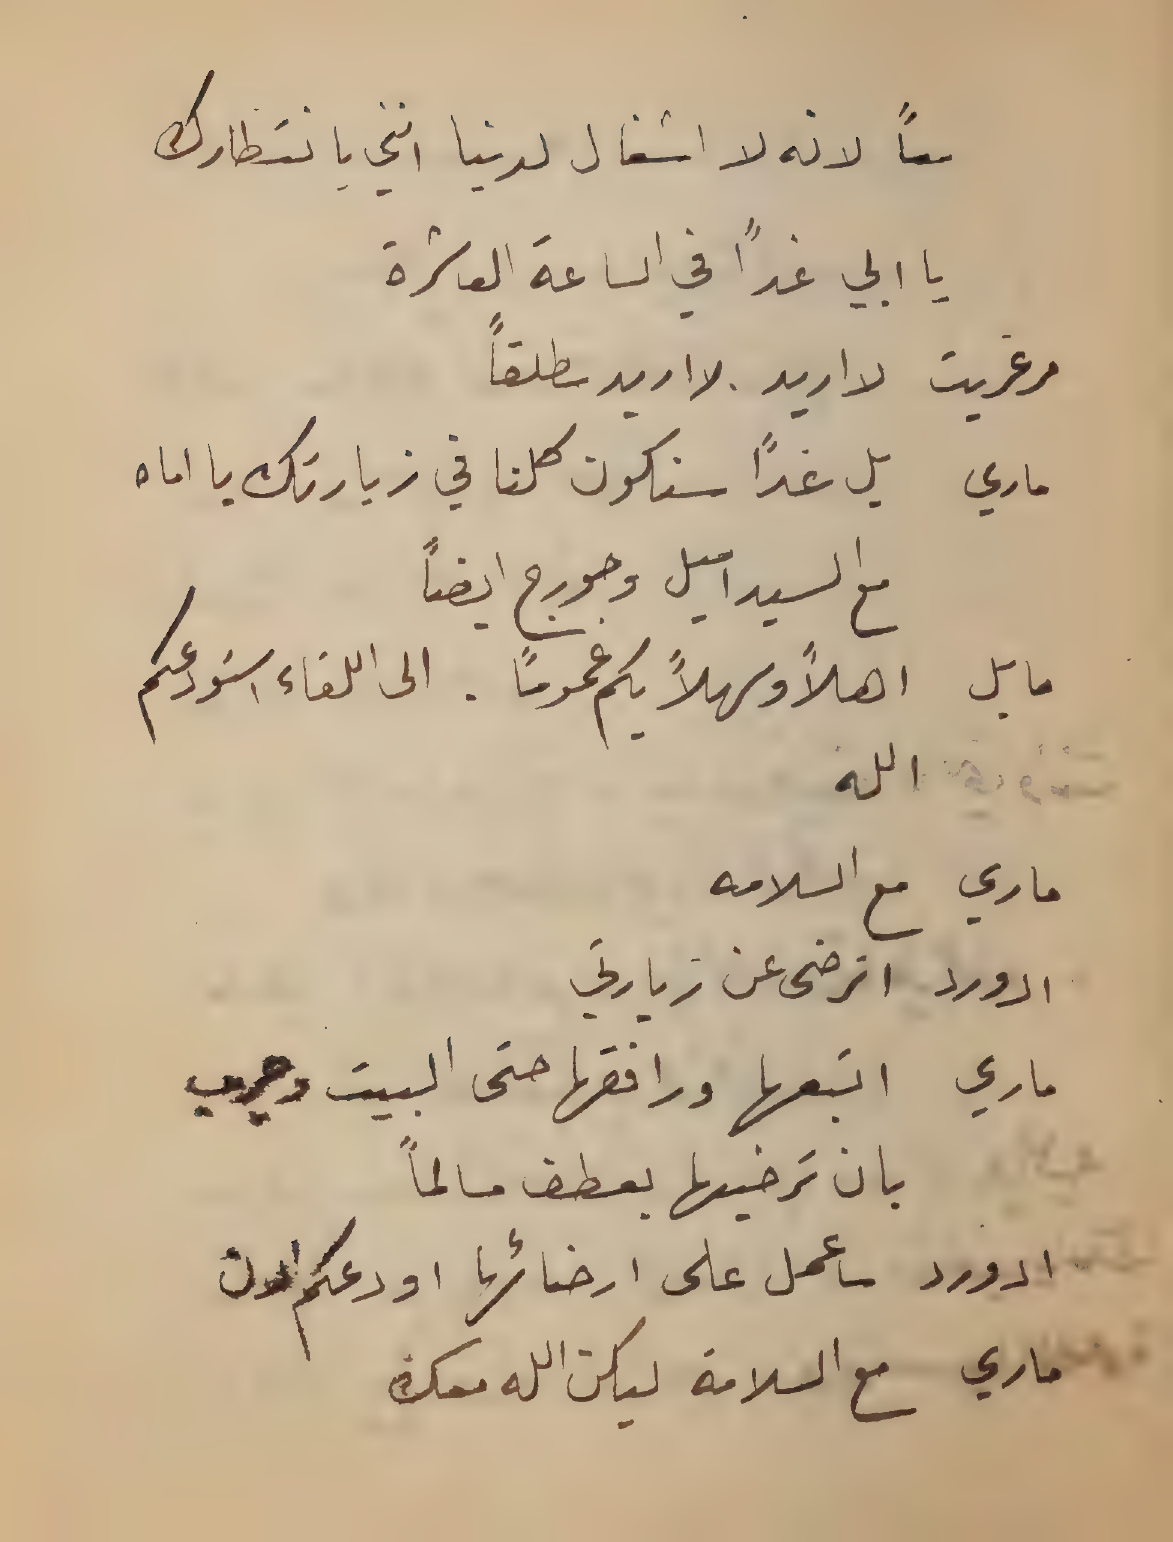 معاً لانه لا اشغال لدينا انني بانتظارك
يا ابي غداً في الساعة العاشرة
مرغريت لا اريد . لا اريد مطلقاً
ماري بل غداً سنكون كلنا في زيارتك يا اماه
مع السيد اميل وجورج ايضاً
مابل اهلاً وسهلاً بكم عموماً . الى اللقاء استودعكم
الله
ماري مع السلامه
ادورد اترضى عن زيارتي
ماري اتبعها ورافقها حتى البيت
بان ترضيها بعطف سالماً
ادورد ساعمل على ارضائها اودعكم الان
ماري مع السلامة ليكن الله معك